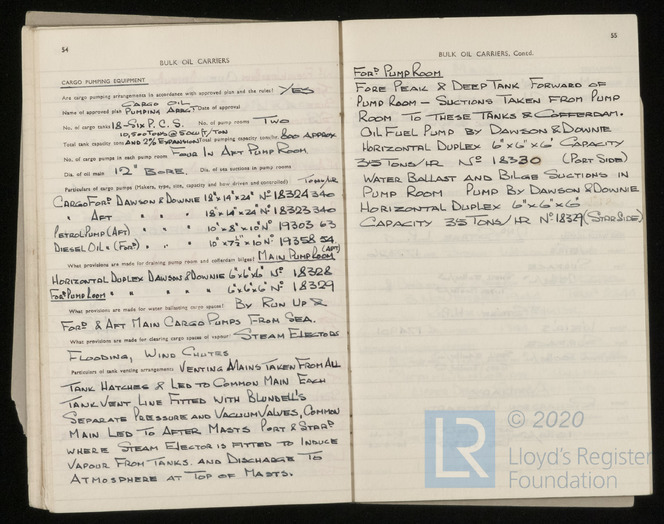 54
BULK OIL CARRIERS
CARGO PUMPING EQUIPMENT
Are cargo pumping arrangements in accordance with approved plan and the rules? YES
CARGO OIL
Name of approved plan PUMPING ARRGT Date of approval
No. of cargo tanks 18 - SIX P.C.S. No. of pump rooms TWO
10,500 TONS @ 50 CU FT/TON
Total tank capacity tons AND 2% EXPANSION Total pumping capacity tons/hr. 800 APPROX
No. of cargo pumps in each pump room FOUR IN AFT PUMP ROOM
Dia. of oil main 12" BORE. Dia. of sea suctions in pump rooms
Particulars of cargo pumps (Makers, type, size, capacity and how driven and controlled) TONS/HR
CARGO FORD DAWSON & DOWNIE 18"x14"x24" No 18324 340
" AFT " " 18"x14"x24" No 18323 340
PETROL PUMP (AFT) " " 10"x8"x10" No 19303 63
DIESEL OIL " (FORD) " " 10"x7½"x10" No 19358 54
What provisions are made for draining pump room and cofferdam bilges? MAIN PUMP ROOM (AFT)
HORIZONTAL DUPLEX DAWSON & DOWNIE 6"x6"x6" No 18328
FORD PUMP ROOM " " " 6"x6"x6" No 18329
What provisions are made for water ballasting cargo spaces? BY RUN UP &
FORD & AFT MAIN CARGO PUMPS FROM SEA.
What provisions are made for clearing cargo spaces of vapour? STEAM EJECTORS
FLOODING, WIND CHUTES
Particulars of tank venting arrangements VENTING MAINS TAKEN FROM ALL
TANK HATCHES & LED TO COMMON MAIN EACH
TANK VENT LINE FITTED WITH BLUNDELL'S
SEPARATE PRESSURE AND VACUUM VALVES, COMMON
MAIN LED TO AFTER MASTS PORT & STARD
WHERE STEAM EJECTOR IS FITTED TO INDUCE
VAPOUR FROM TANKS. AND DISCHARGE TO
ATMOSPHERE AT TOP OF MASTS.
55
BULK OIL CARRIERS. Contd.
FORD PUMP ROOM
FORE PEAK & DEEP TANK FORWARD OF
PUMP ROOM - SUCTIONS TAKEN FROM PUMP
ROOM TO THESE TANKS & COFFERDAM.
OIL FUEL PUMP BY DAWSON & DOWNIE
HORIZONTAL DUPLEX 6"x6"x6" CAPACITY
35 TONS/HR No 18330 (PORT SIDE)
WATER BALLAST AND BILGE SUCTIONS IN
PUMP ROOM PUMP BY DAWSON & DOWNIE
HORIZONTAL DUPLEX 6"x6"x6
CAPACITY 35 TONS/HR No 18329 (STAR SIDE)
© 2020
LR
Lloyd's Register
Foundation